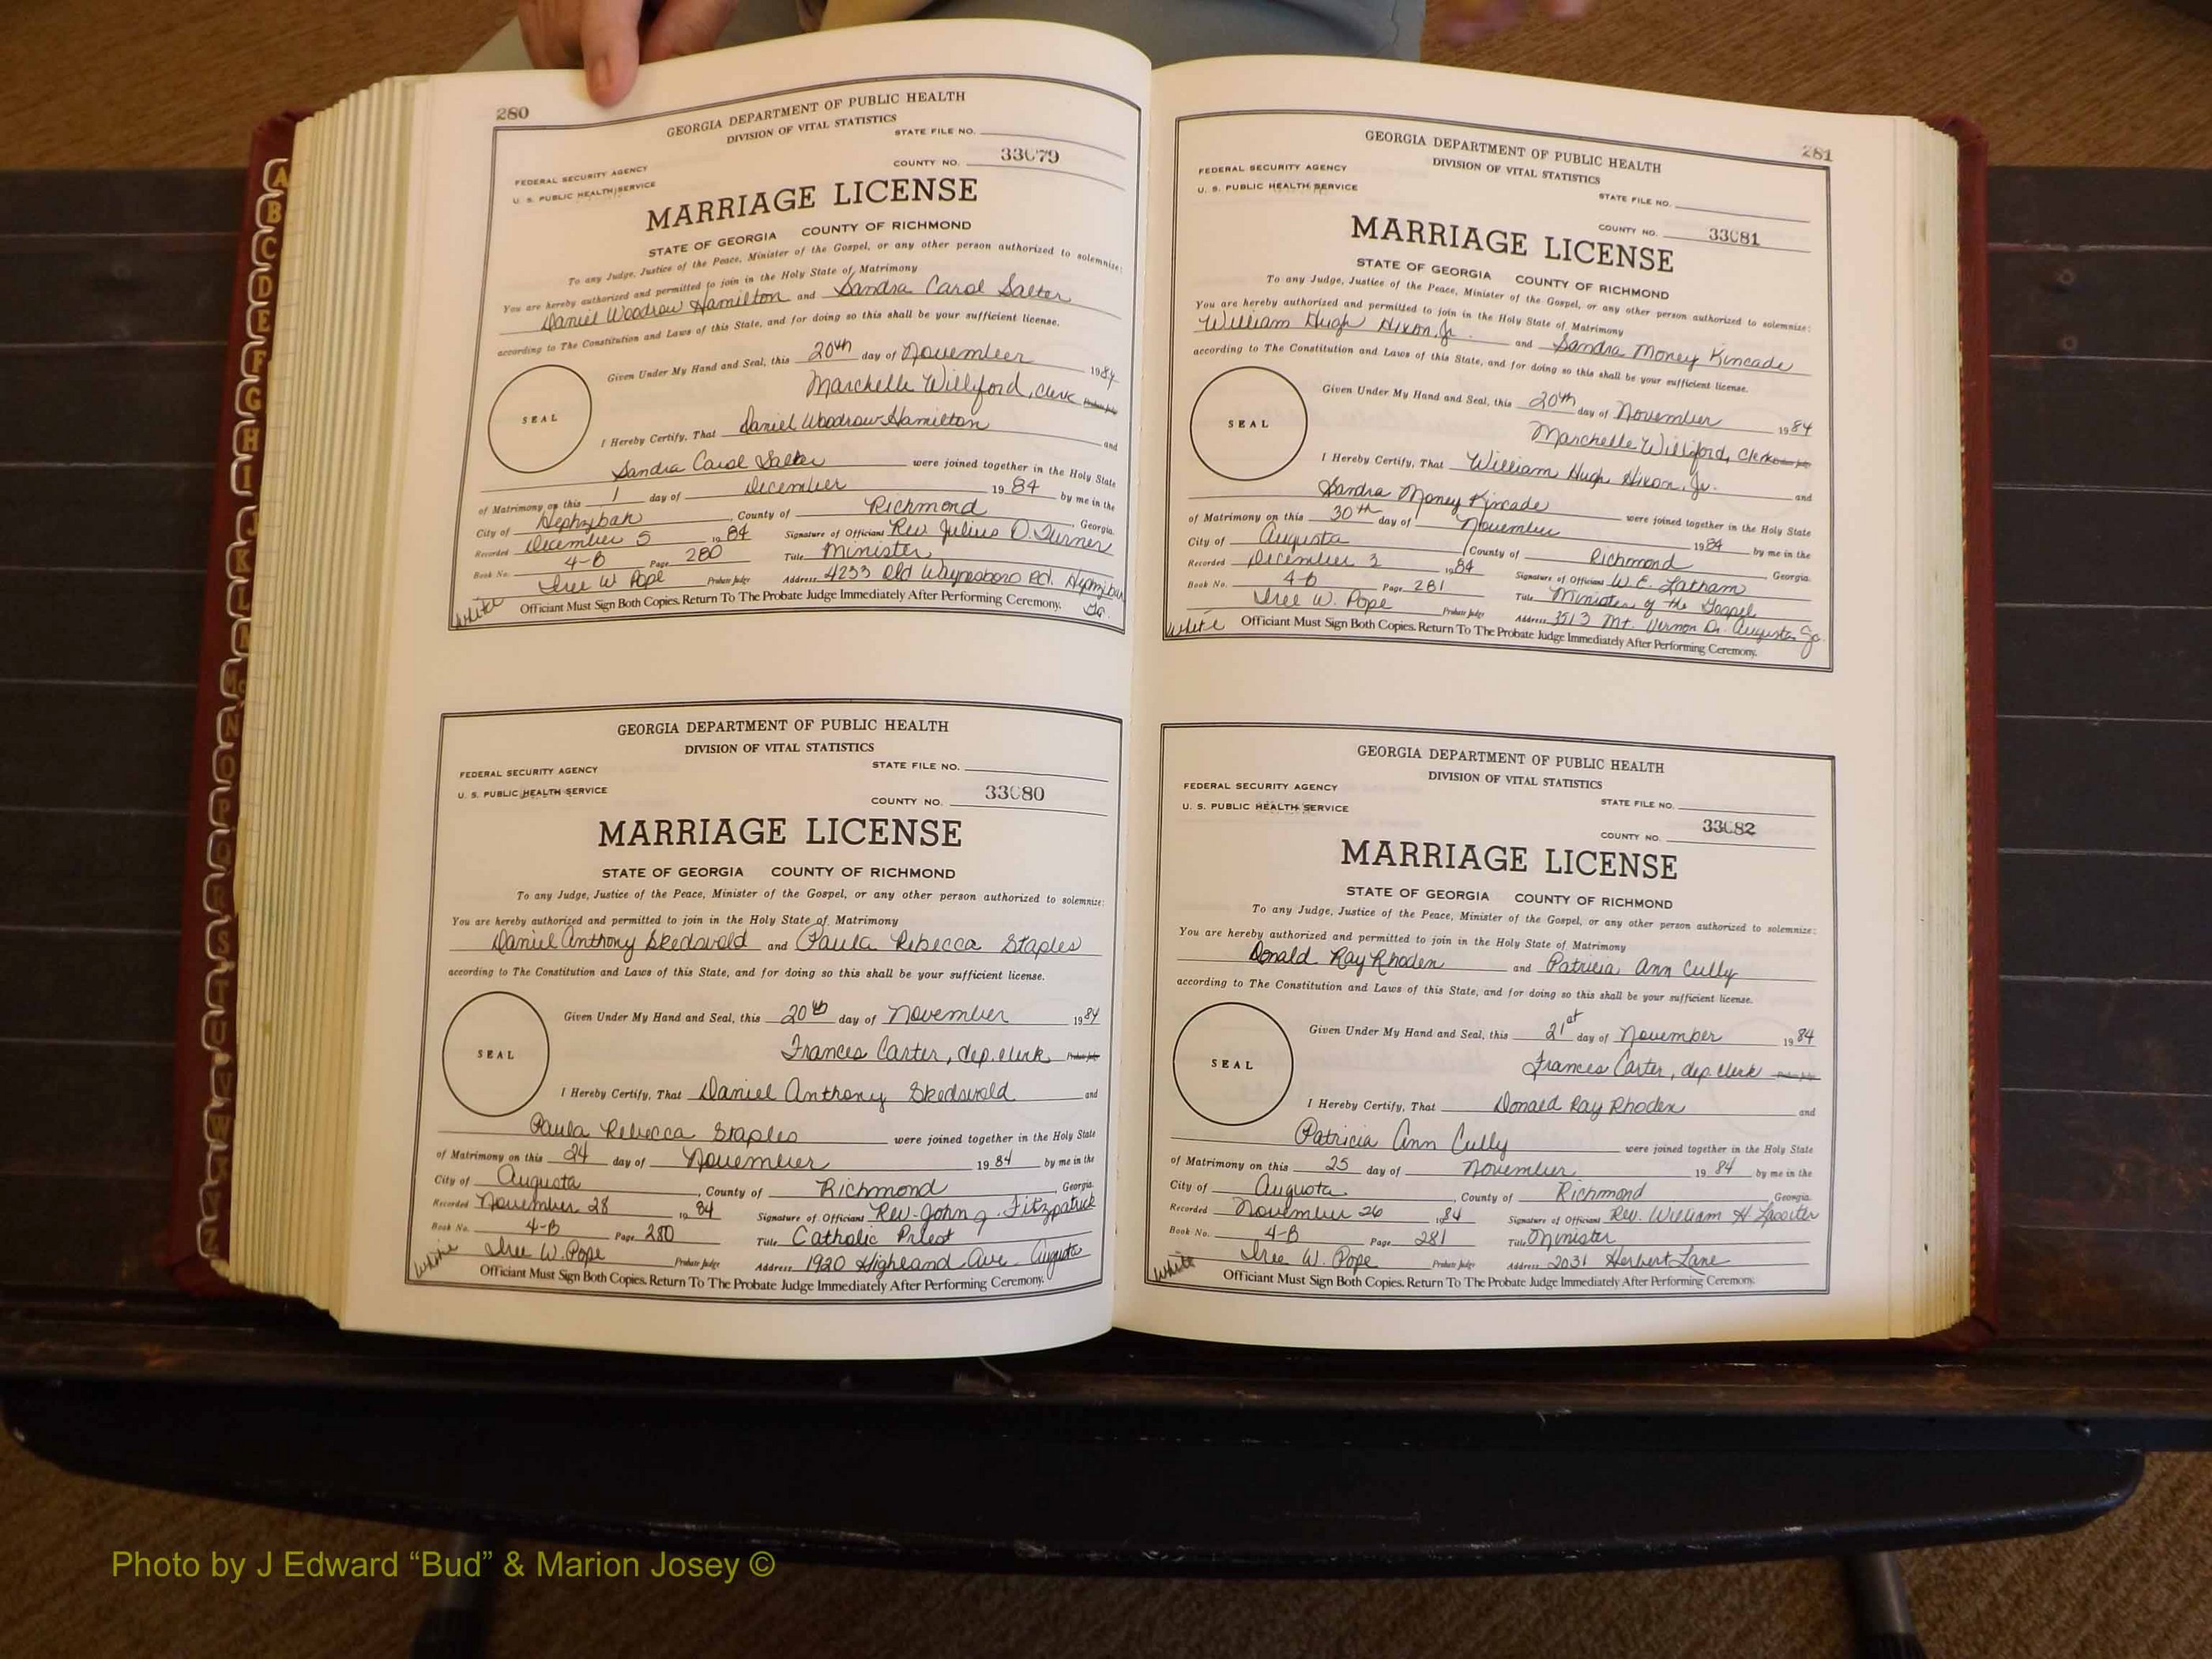 280
GEORGIA DEPARTMENT OF PUBLIC HEALTH
DIVISION OF VITAL STATISTICS
STATE FILE NO.
COUNTY NO. 33079
FEDERAL SECURITY AGENCY
U. S. PUBLIC HEALTH SERVICE
MARRIAGE LICENSE
STATE OF GEORGIA COUNTY OF RICHMOND
To any Judge, Justice of the Peace, Minister of the Gospel, or any other person authorized to solemnize:
You are hereby authorized and permitted to join in the Holy State of Matrimony
Daniel Woodrow Hamilton and Sandra Carol Salter
according to The Constitution and Laws of this State, and for doing so this shall be your sufficient license.
Given Under My Hand and Seal, this 20th day of November 1984
Marchelle Williford, Clerk Probate Judge
SEAL
I Hereby Certify, That Daniel Woodrow Hamilton and
Sandra Carol Salter were joined together in the Holy State
of Matrimony on this 1 day of December 1984 by me in the
City of Hephzibah, County of Richmond, Georgia.
Recorded December 5 1984 Signature of Officiant Rev Julius D. Turner
Book No. 4-B Page 280 Title Minister
Iree W. Pope Probate Judge Address 4233 Old Waynesboro Rd. Hephzibah Ga.
White Officiant Must Sign Both Copies. Return To The Probate Judge Immediately After Performing Ceremony.
GEORGIA DEPARTMENT OF PUBLIC HEALTH
DIVISION OF VITAL STATISTICS
STATE FILE NO.
FEDERAL SECURITY AGENCY
U. S. PUBLIC HEALTH SERVICE
COUNTY NO. 33080
MARRIAGE LICENSE
STATE OF GEORGIA COUNTY OF RICHMOND
To any Judge, Justice of the Peace, Minister of the Gospel, or any other person authorized to solemnize:
You are hereby authorized and permitted to join in the Holy State of Matrimony
Daniel Anthony Skedsvold and Paula Rebecca Staples
according to The Constitution and Laws of this State, and for doing so this shall be your sufficient license.
Given Under My Hand and Seal, this 20th day of November 1984
Frances Carter, dep. clerk Probate Judge
SEAL
I Hereby Certify, That Daniel Anthony Skedsvold and
Paula Rebecca Staples were joined together in the Holy State
of Matrimony on this 24 day of November 1984 by me in the
City of Augusta, County of Richmond, Georgia.
Recorded November 28 1984 Signature of Officiant Rev. John J. Fitzpatrick
Book No. 4-B Page 280 Title Catholic Priest
Iree W. Pope Probate Judge Address 1920 Highland Ave. Augusta
White Officiant Must Sign Both Copies. Return To The Probate Judge Immediately After Performing Ceremony.
281
GEORGIA DEPARTMENT OF PUBLIC HEALTH
DIVISION OF VITAL STATISTICS
FEDERAL SECURITY AGENCY
U. S. PUBLIC HEALTH SERVICE
STATE FILE NO.
COUNTY NO. 33081
MARRIAGE LICENSE
STATE OF GEORGIA COUNTY OF RICHMOND
To any Judge, Justice of the Peace, Minister of the Gospel, or any other person authorized to solemnize:
You are hereby authorized and permitted to join in the Holy State of Matrimony
William Hugh Hixon, Jr. and Sandra Money Kincade
according to The Constitution and Laws of this State, and for doing so this shall be your sufficient license.
Given Under My Hand and Seal, this 20th day of November 1984
Marchelle Williford, Clerk Probate Judge
SEAL
I Hereby Certify, That William Hugh Hixon, Jr. and
Sandra Money Kincade were joined together in the Holy State
of Matrimony on this 30th day of November 1984 by me in the
City of Augusta, County of Richmond, Georgia.
Recorded December 3 1984 Signature of Officiant W. E. Latham
Book No. 4-B Page 281 Title Minister of the Gospel
Iree W. Pope Probate Judge Address 3513 Mt. Vernon Dr. Augusta, Ga.
White Officiant Must Sign Both Copies. Return To The Probate Judge Immediately After Performing Ceremony.
GEORGIA DEPARTMENT OF PUBLIC HEALTH
DIVISION OF VITAL STATISTICS
FEDERAL SECURITY AGENCY
U. S. PUBLIC HEALTH SERVICE
STATE FILE NO.
COUNTY NO. 33082
MARRIAGE LICENSE
STATE OF GEORGIA COUNTY OF RICHMOND
To any Judge, Justice of the Peace, Minister of the Gospel, or any other person authorized to solemnize:
You are hereby authorized and permitted to join in the Holy State of Matrimony
Donald Ray Rhoden and Patricia Ann Cully
according to The Constitution and Laws of this State, and for doing so this shall be your sufficient license.
Given Under My Hand and Seal, this 21st day of November 1984
Frances Carter, dep. clerk Probate Judge
SEAL
I Hereby Certify, That Donald Ray Rhoden and
Patricia Ann Cully were joined together in the Holy State
of Matrimony on this 25 day of November 1984 by me in the
City of Augusta, County of Richmond, Georgia.
Recorded November 26 1984 Signature of Officiant Rev. William H Lassiter
Book No. 4-B Page 281 Title Minister
Iree W. Pope Probate Judge Address 2031 Herbert Lane
White Officiant Must Sign Both Copies. Return To The Probate Judge Immediately After Performing Ceremony.
A
B
C
D
E
F
G
H
I
J
K
L
M
Mc
N
O
P
Q
R
S
T
U
V
W
Y
Z
Photo by J Edward “Bud” & Marion Josey ©